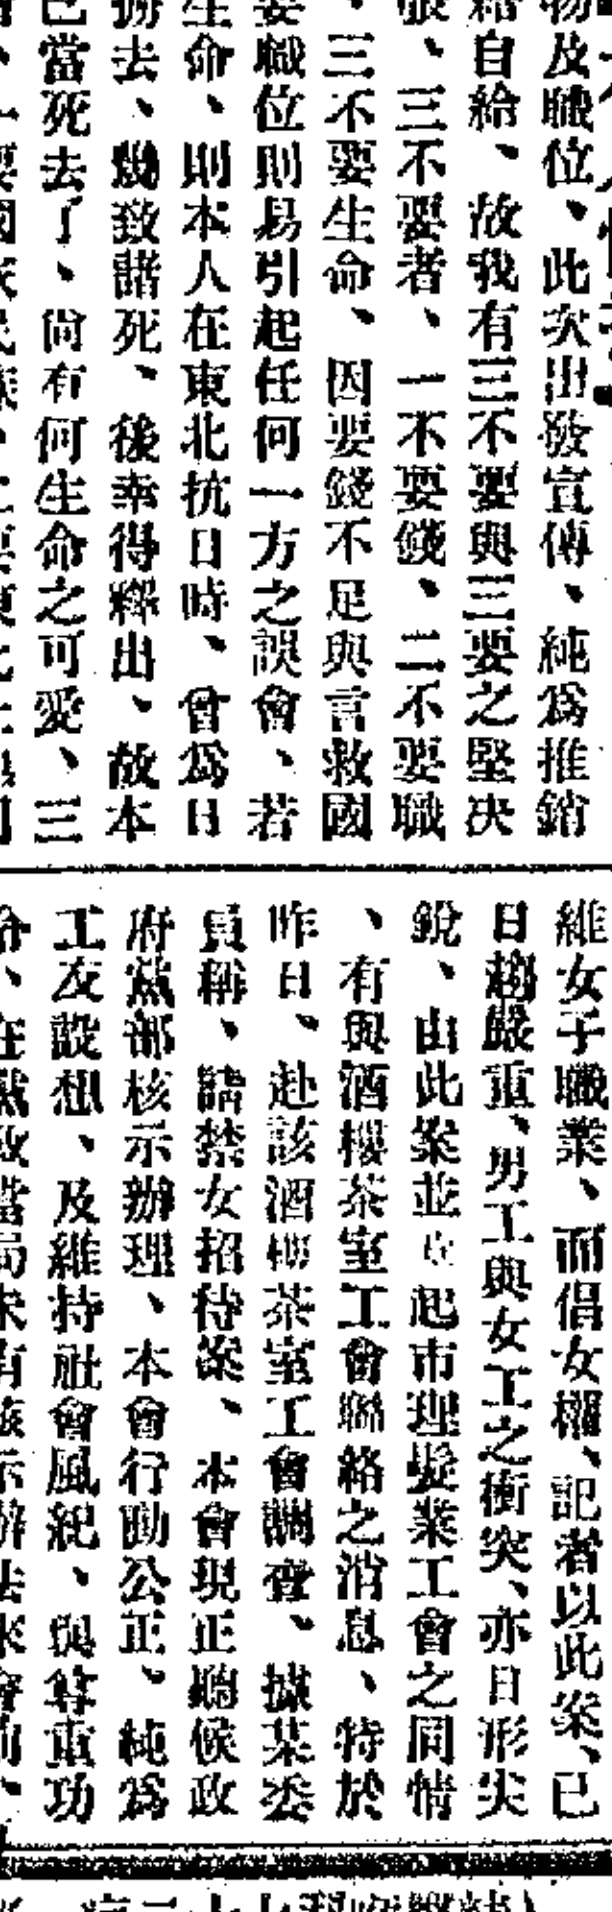 物及職位、此次出發宣傳、純爲推銷
給自給、故我有三不要與三要之堅决
、三不要者、一不要錢、二不要職
、三不要生命、因要錢不足與言救國
要職位則易引起任何一方之誤會、若
生命、則本人在東北抗日時、曾爲日
去、幾致諸死、後幸得釋出、故本
已當死去了、尙有何生命之可愛、三
、一要國家民族、二要東北
維女子職業、而倡女權、記者以此案、已
日趨嚴重、男工與女工之衝突、亦日形尖
銳、由此案並起市理髮業工會之同情
、有與酒樓茶室工會聯絡之消息、特於
昨日、赴該酒樓茶室工會調查、據某委
員稱、請禁女招待案、本會現正聽候政
府黨部核示辦理、本會行動公正、純爲
工友設想、及維持社會風紀、與尊重功
令、在黨政當局未有核示辦法來會前、